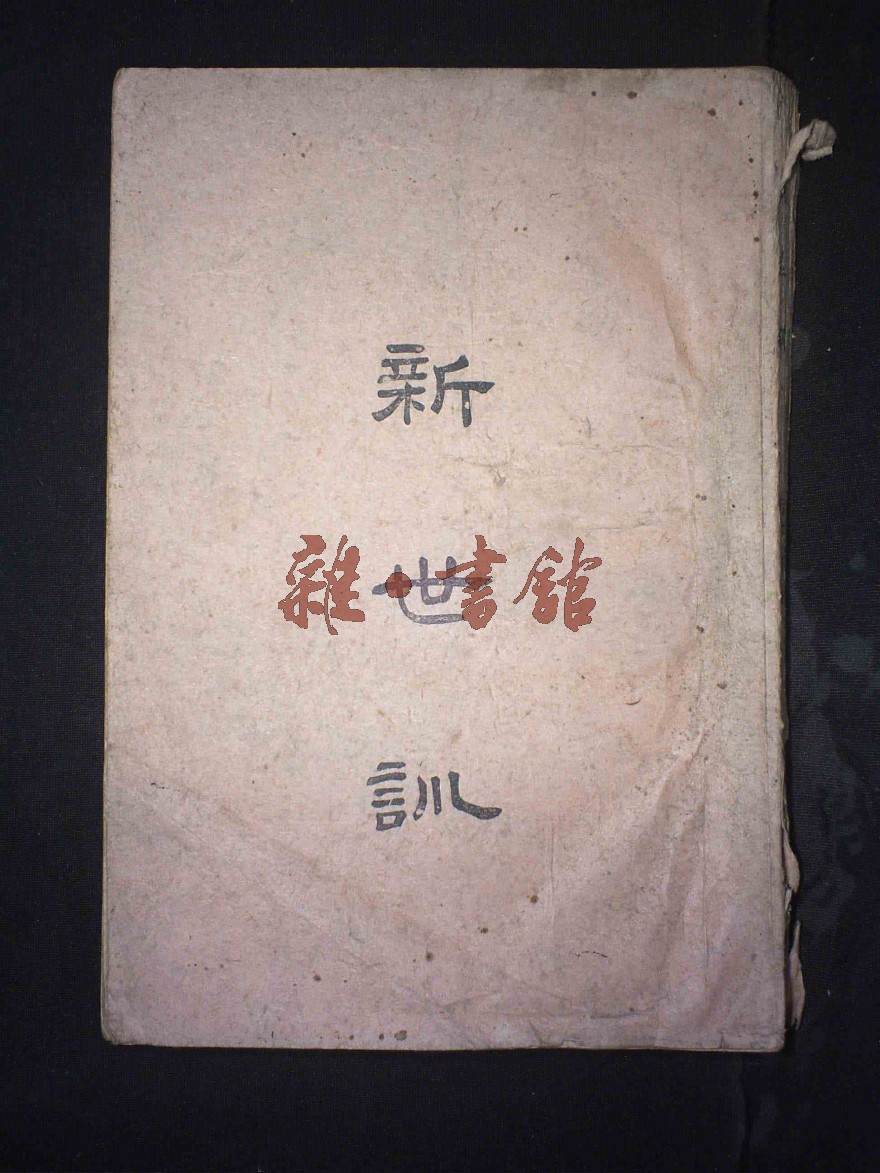 新
世
訓
雜·書館